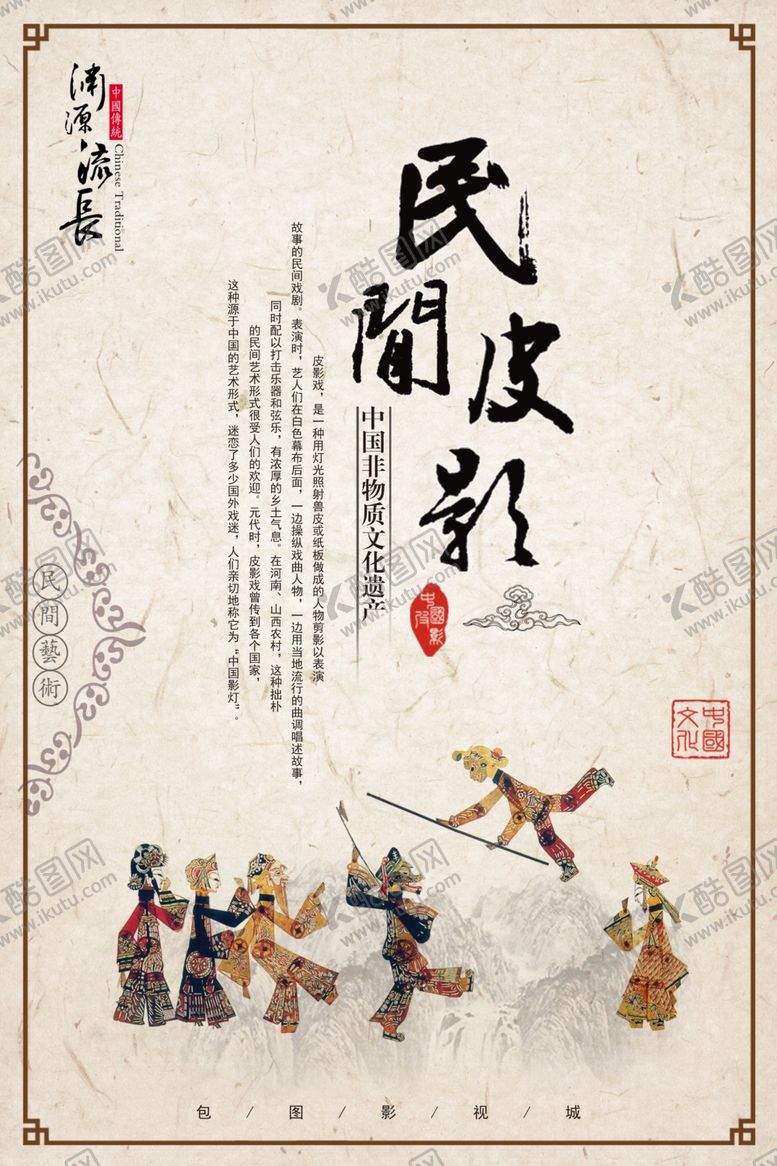 渊源流長
中國傳統
Chinese Traditional
民間皮影
中国非物质文化遗产
皮影戏，是一种用灯光照射兽皮或纸板做成的人物剪影以表演
故事的民间戏剧。表演时，艺人们在白色幕布后面，一边操纵戏曲人物，一边用当地流行的曲调唱述故事，
同时配以打击乐器和弦乐，有浓厚的乡土气息。在河南、山西农村，这种拙朴
的民间艺术形式很受人们的欢迎。元代时，皮影戏曾传到各个国家，
这种源于中国的艺术形式，迷恋了多少国外戏迷，人们亲切地称它为“中国影灯”。
中國皮影
民間藝術
中國文化
包/图/影/视/城
酷图网
www.ikutu.com